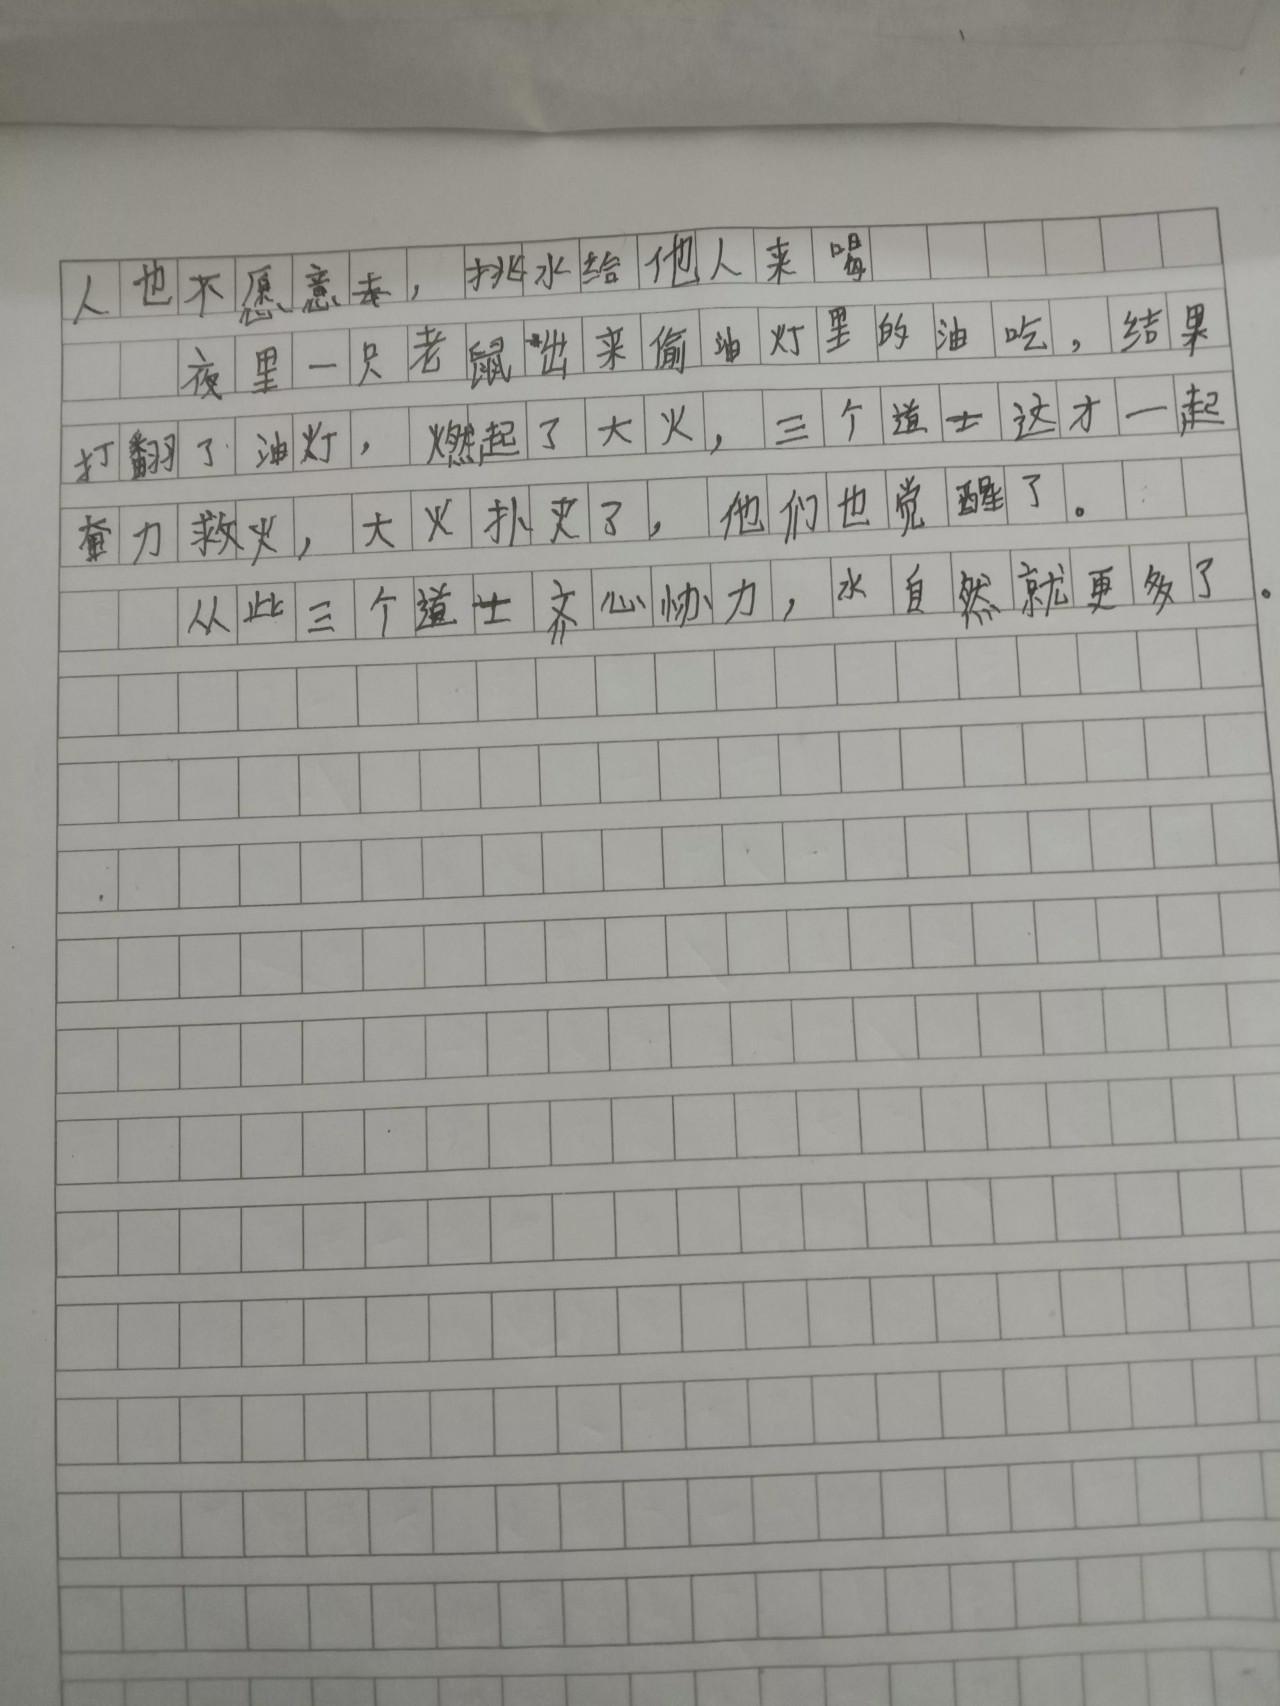 人也不愿意去，挑水给他人来喝
夜里一只老鼠出来偷油灯里的油吃，结果
打翻了油灯，燃起了大火，三个道士这才一起
奋力救火，大火扑灭了，他们也觉醒了。
从此三个道士齐心协力，水自然就更多了。